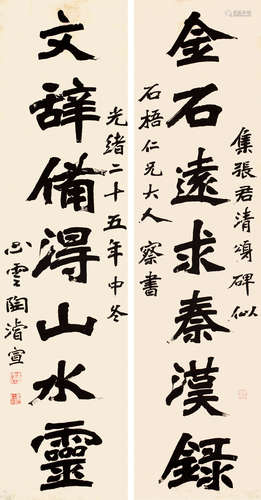 集張君清頌碑似
金石遠求秦漢錄
石梧仁兄大人察書
文辭備得山水靈
光緒二十五年中冬
心雲陶濬宣